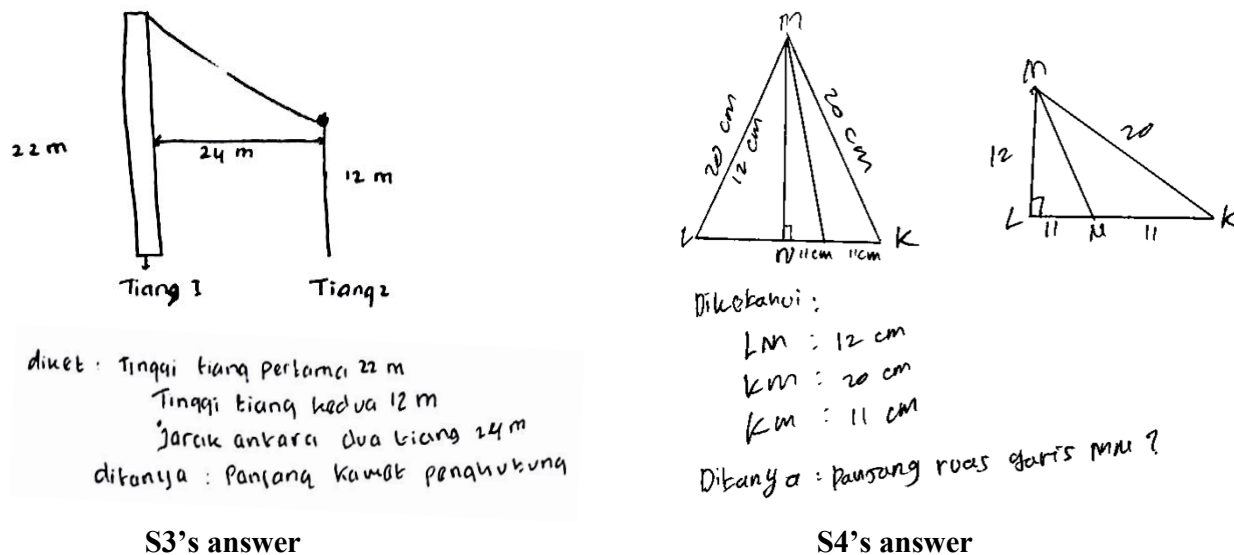 22 m
24 m
12 m
Tiang 1
Tiang 2
diket : Tinggi tiang pertama 22 m
Tinggi tiang kedua 12 m
Jarak antara dua tiang 24 m
ditanya : Panjang kawat penghubung
S3's answer
M
20 cm
12 cm
20 cm
L
N
11cm
11cm
K
M
12
20
L
11
N
11
K
Diketahui :
LM : 12 cm
KM : 20 cm
KM : 11 cm
Ditanya : Panjang ruas garis MN ?
S4's answer